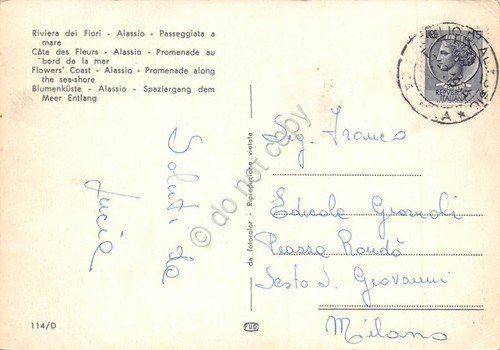 Riviera dei Fiori - Alassio - Passeggiata a
mare
Côte des Fleurs - Alassio - Promenade au
bord de la mer
Flowers' Coast - Alassio - Promenade along
the sea-shore
Blumenküste - Alassio - Spaziergang dem
Meer Entlang
Saluti da
Lucia
114/D
da fotocolor - Riproduzione vietata
FUD
do not copy
REPVBBLICA
ITALIANA
Sig. Franco
Edicola Giornali
Piazza Rondò
Sesto S. Giovanni
Milano